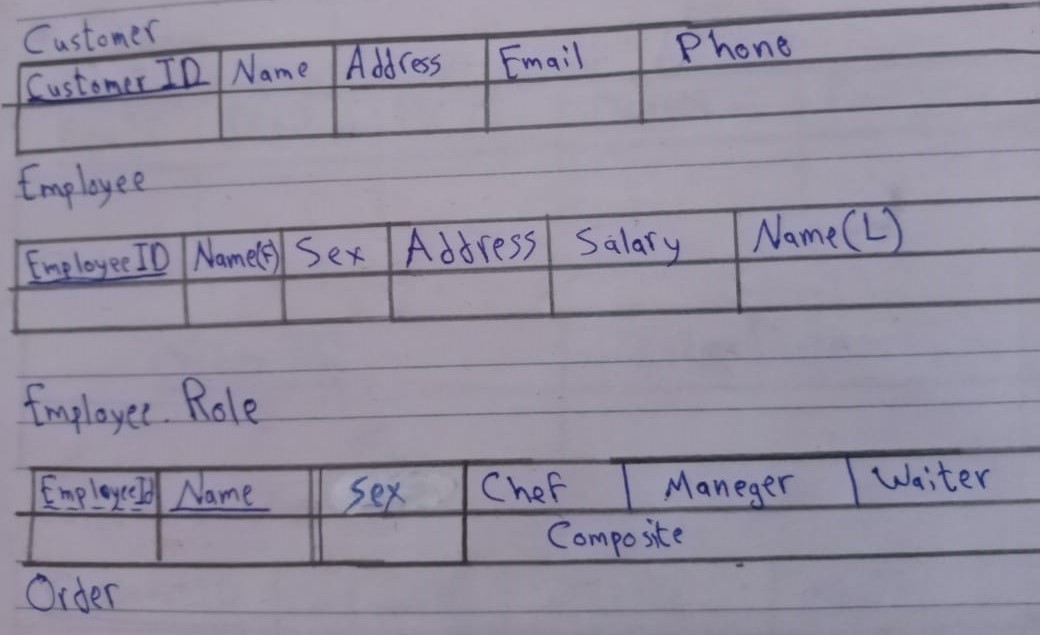 Customer
Customer ID Name Address Email Phone
Employee
EmployeeID Name(F) Sex Address Salary Name(L)
Employee Role
EmployeeId Name Sex Chef Maneger Waiter
Composite
Order